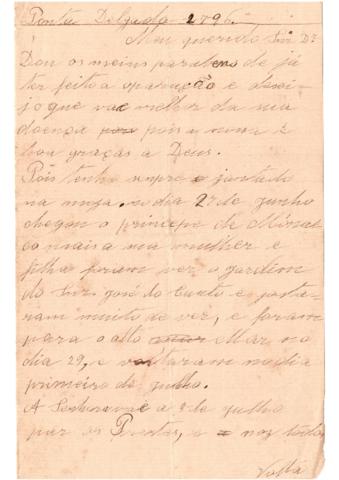 Ponta Delgada 1896.
Meu querido Snr. Dr.
Dou os meus parabens de já
ter feito a oparação e dese-
jo que vae melhor da sua
doença pois a nossa é
boa graças a Deus.
Pois tenho sempre jantado
na meza. no dia 27 de junho
chegou o principe de Mónat
co mais a sua mulher e
filha foram ver o jardim
do Snr. José do Canto e gosta-
ram muito de ver, e foram
para o alto Mar no
dia 29, e voltaram no dia
primeiro de julho.
A Senhora vae a 8 de julho
par as Prestes, e nos todos
Volta